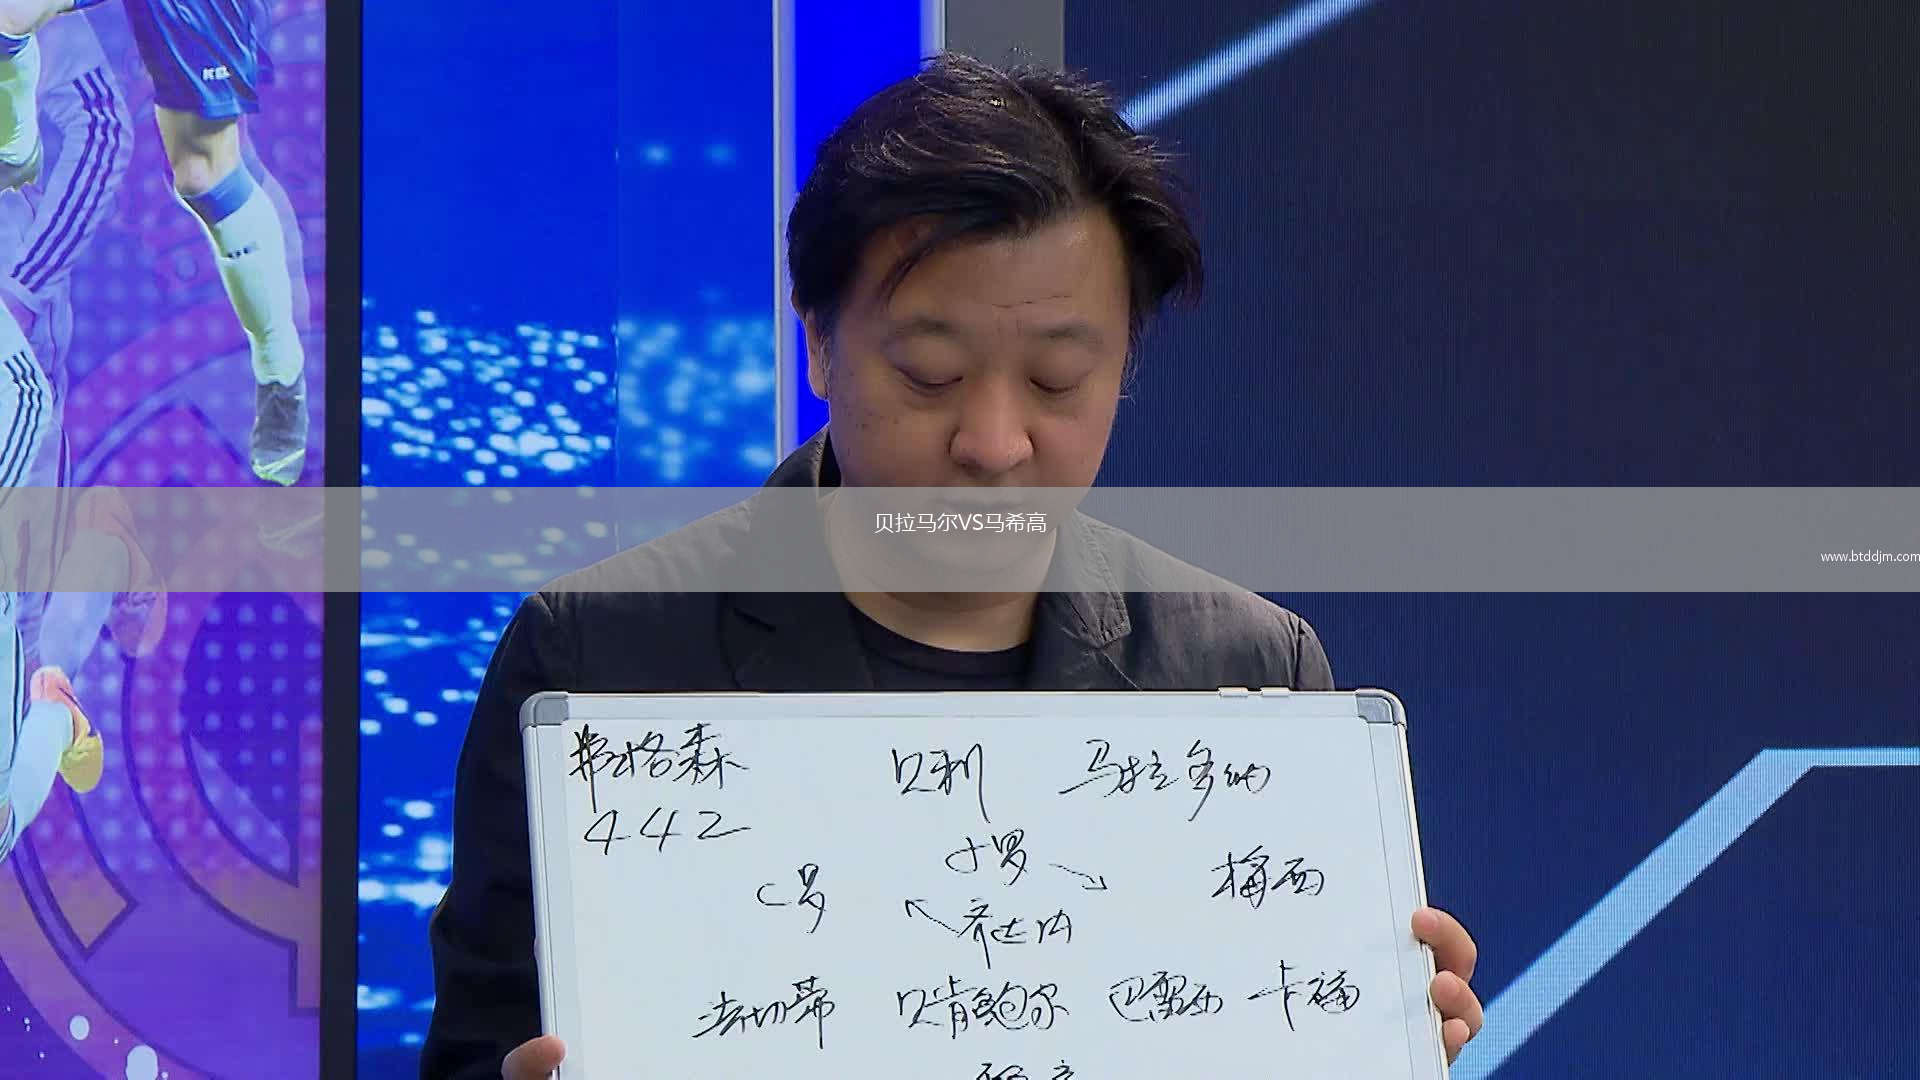 贝拉马尔VS马希高
www.btddjm.com
弗格森 贝利 马拉多纳
442
小罗
C罗 梅西
齐达内
法切蒂 贝肯鲍尔 巴雷西 卡福